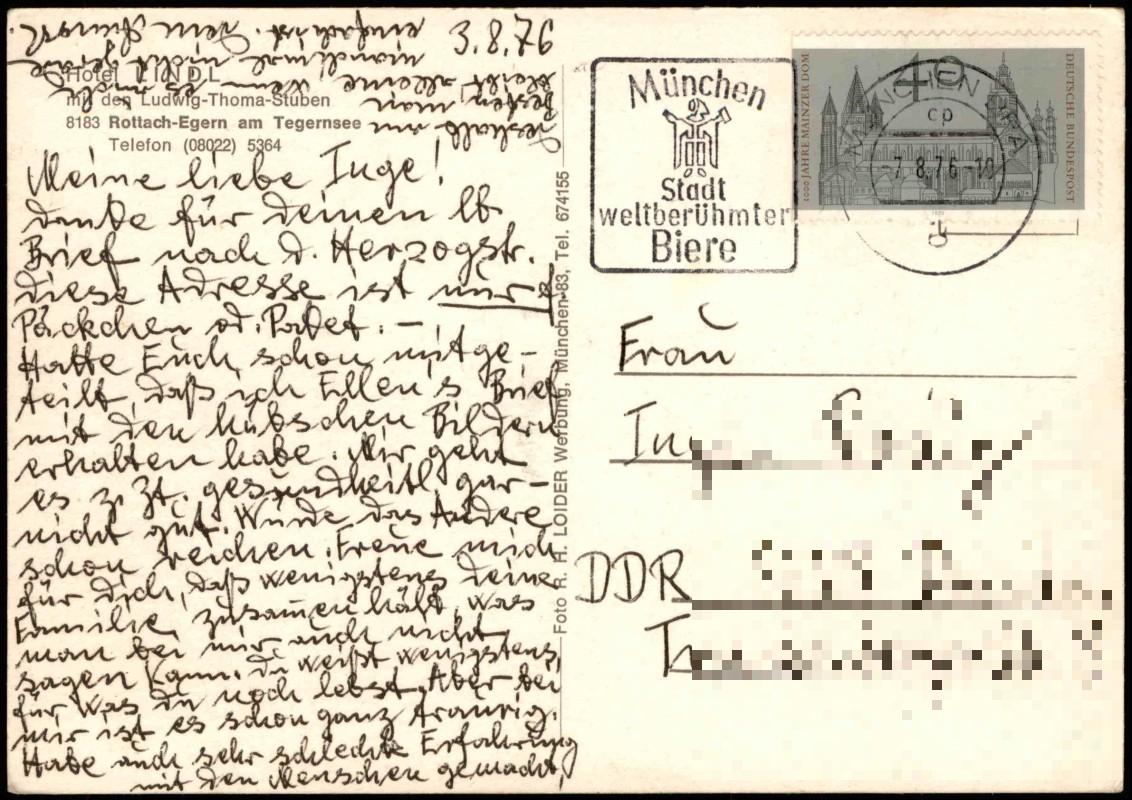 3.8.76
Hotel LINDL
mit den Ludwig-Thoma-Stuben
8183 Rottach-Egern am Tegernsee
Telefon (08022) 5364
Meine liebe Inge!
danke für deinen lb
Brief nach d. Herzogstr.
diese Adresse ist nur f.
Päckchen od. Paket. —
Hatte Euch schon mitge-
teilt, daß ich Ellen's Brief
mit den hübschen Bildern
erhalten habe. Mir geht
es z. Zt. gesundheitl. gar-
nicht gut. Würde das Andere
schon reichen. Freue mich
für dich, daß wenigstens deine
Familie zusammenhält, was
man bei mir auch nicht
sagen kann. du weißt wenigstens,
für was du noch lebst. Aber bei
mir ist es schon ganz traurig.
Habe auch sehr schlechte Erfahrung
mit den Menschen gemacht,
deshalb am
besten man
bleibt alleine, wenn es auch
manchmal nicht gerade
einfach ist. dein
Foto R. H. LOIDER Werbung, München 83, Tel. 674155
München
Stadt
weltberühmter
Biere
1000 JAHRE MAINZER DOM
40
DEUTSCHE BUNDESPOST
MÜNCHEN
cp
-7.8.76-10
Frau
DDR